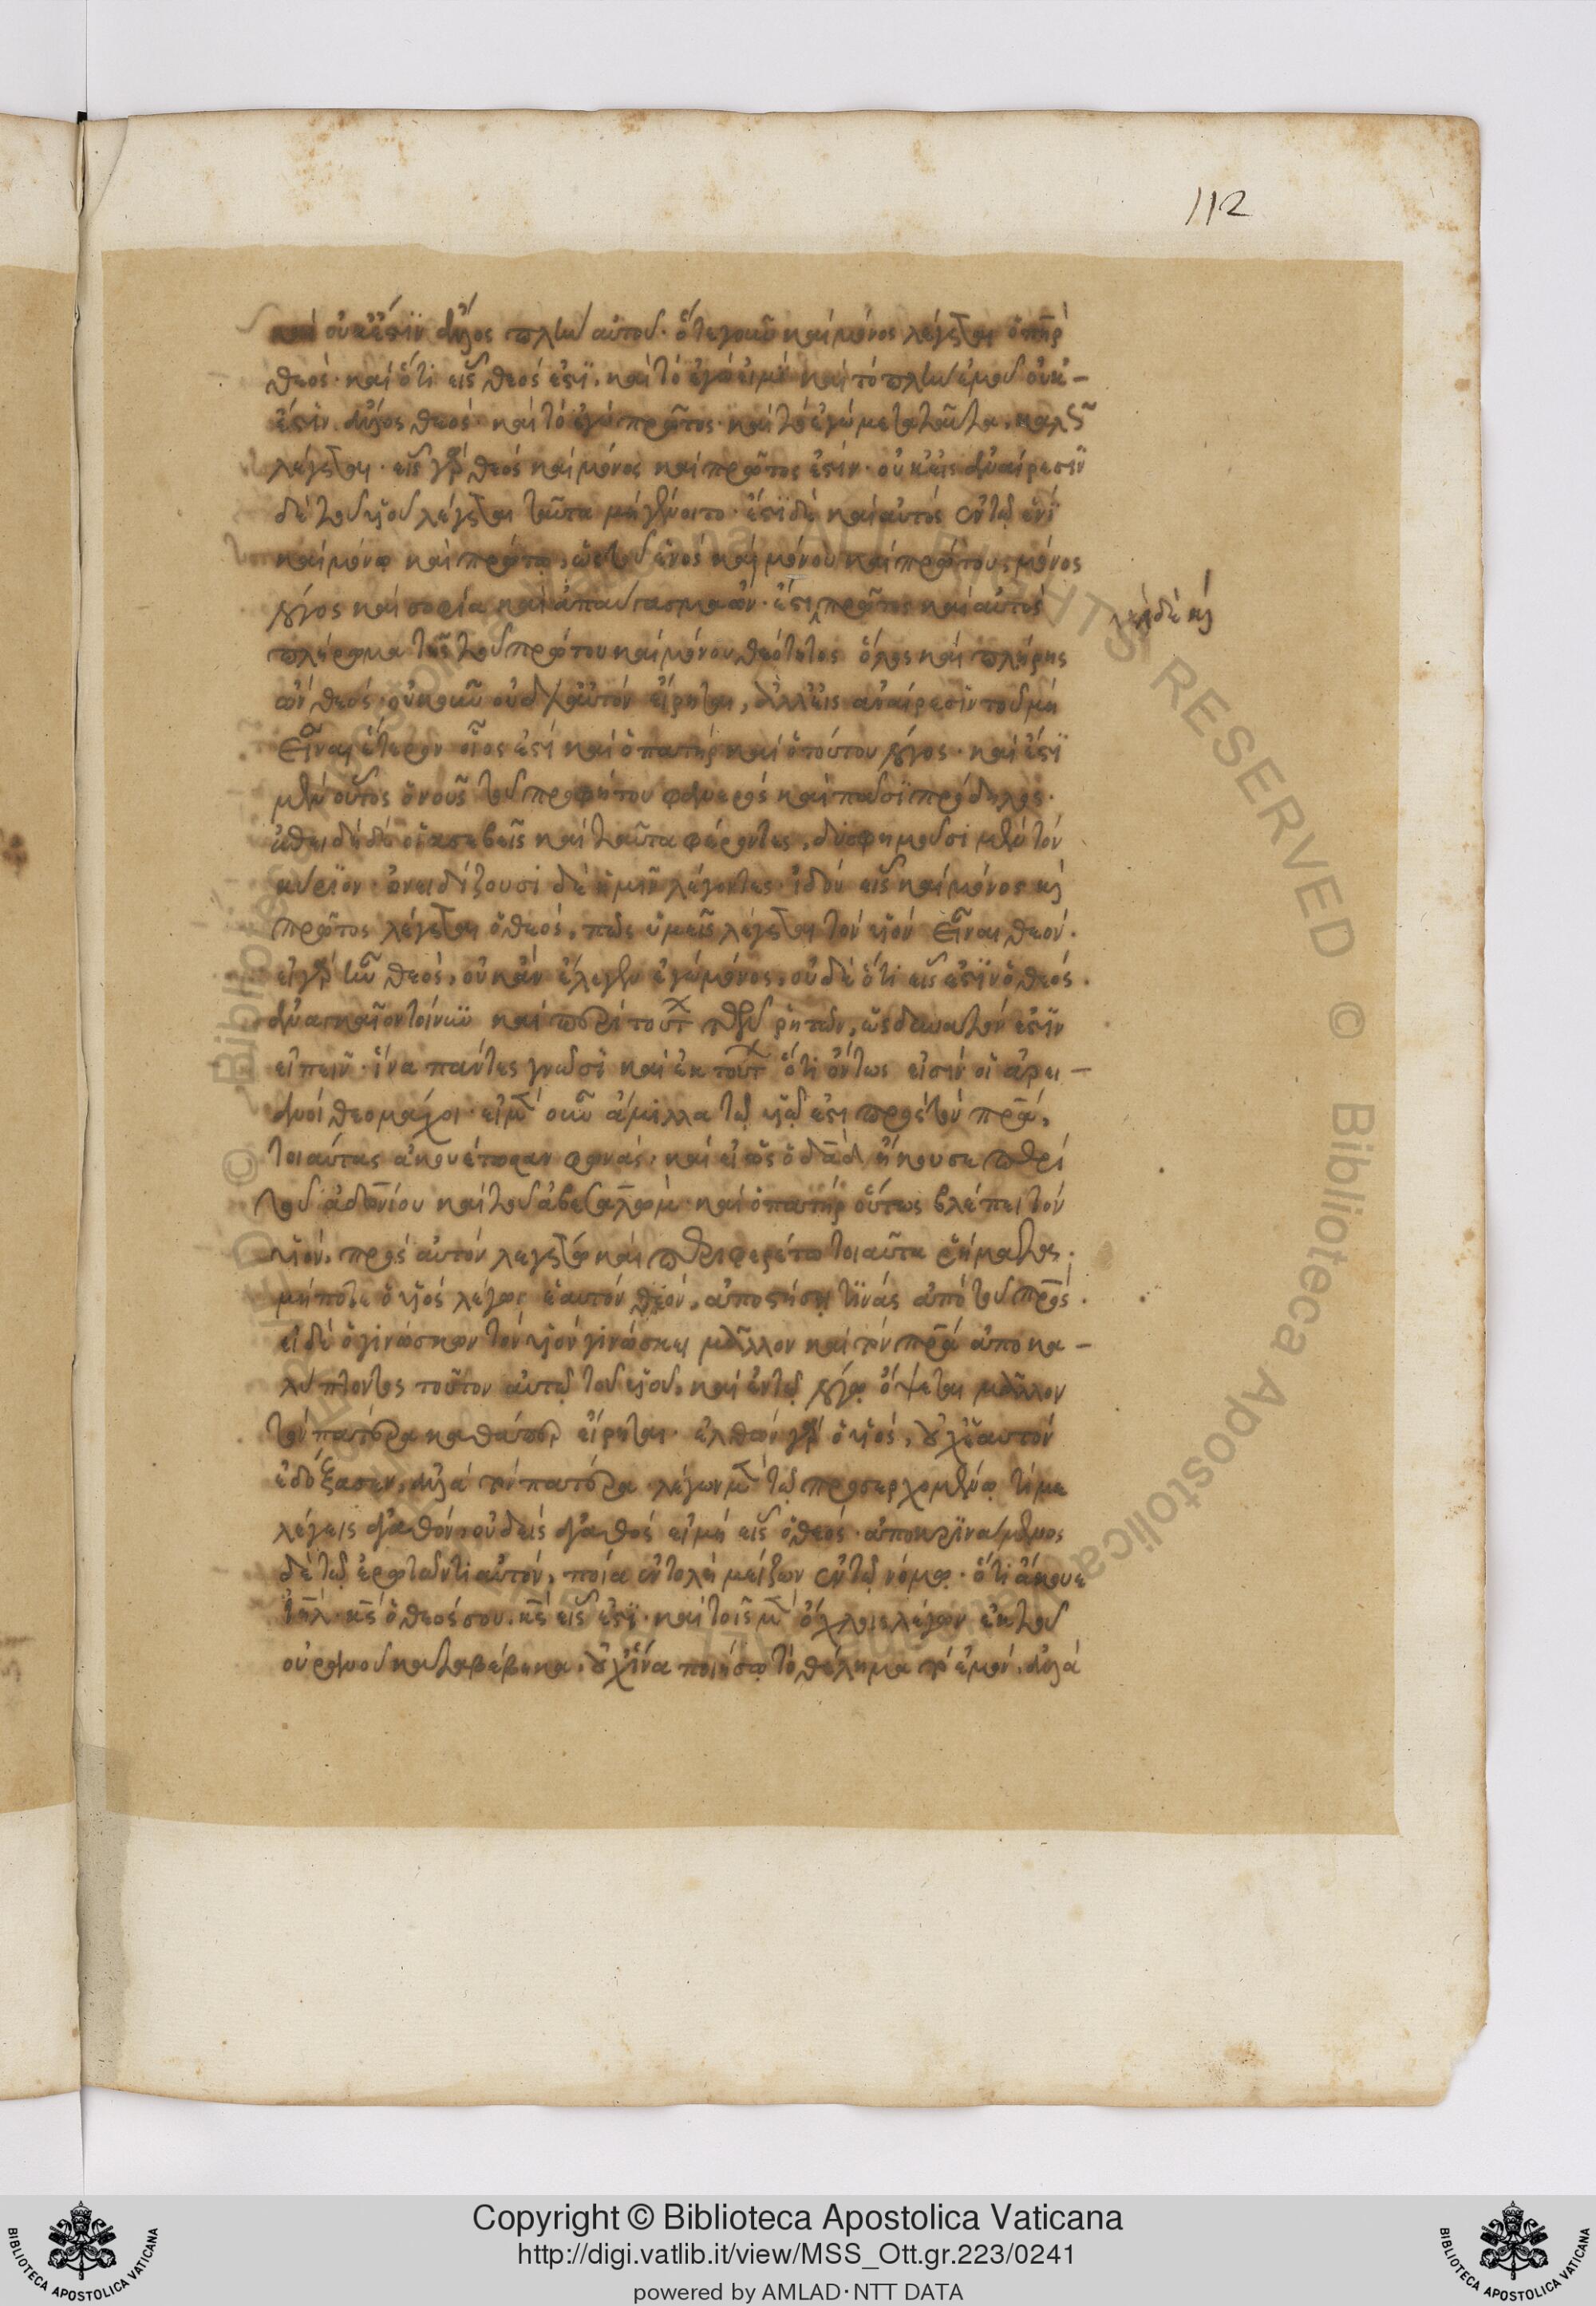 112
καὶ οὐκ ἔστιν ἄλλος πλὴν αὐτοῦ· ὅτε γοῦν καὶ μόνος λέγεται ὁ πηρ
θεός· καὶ ὅτι εἷς θεός ἐστι, καὶ τὸ ἐγώ εἰμι καὶ τὸ πλὴν ἐμοῦ οὐκ-
ἔστιν ἄλλος θεός· καὶ τὸ ἐγὼ πρῶτος· καὶ τὸ ἐγὼ μετὰ ταῦτα, καλῶς
λέγεται· εἷς γὰρ θεὸς καὶ μόνος καὶ πρῶτος ἐστίν· οὐκ εἰς ἀναίρεσιν
δὲ τοῦ υἱοῦ λέγεται ταῦτα μὴ γένοιτο· ἔστι δὲ καὶ αὐτὸς ἐν τῷ ἑνὶ
καὶ μόνῳ καὶ πρώτῳ, ὡς τοῦ ἑνὸς καὶ μόνου καὶ πρώτου μόνος
λόγος καὶ σοφία καὶ ἀπαύγασμα ὤν· ἔστι πρῶτος καὶ αὐτὸς
δὲ κ
πλήρωμα τῆς τοῦ πρώτου καὶ μόνου θεότητος ὅλος καὶ πλήρης
ὢν θεός· οὐκοῦν οὐ δι' αὐτὸν εἴρηται, ἀλλ' εἰς ἀναίρεσιν τοῦ μὴ
εἶναι ἕτερον οἷος ἐστὶ καὶ ὁ πατὴρ καὶ ὁ τούτου λόγος· καὶ ἔστι
μὲν οὗτος ὁ νοῦς τοῦ προφήτου φανερὸς καὶ πᾶσι πρόδηλος·
ἐπειδὴ δὲ οἱ ἀσεβεῖς καὶ ταῦτα φέροντες, δυσφημοῦσι μὲν τὸν
κύριον· ὀνειδίζουσι δὲ ἡμῖν λέγοντες· ἰδοὺ εἷς καὶ μόνος κ
πρῶτος λέγεται ὁ θεός, πῶς ὑμεῖς λέγεται τὸν υἱὸν εἶναι θεόν·
εἰ γὰρ ἦν θεός, οὐκ ἂν ἔλεγεν ἐγὼ μόνος, οὐδὲ ὅτι εἷς ἐστὶν ὁ θεός·
ἀναγκαῖον τοίνυν καὶ περὶ τούτ τῶν ῥητῶν, ὡς δυνατόν ἐστιν
εἰπεῖν· ἵνα πάντες γνῶσι καὶ ἐκ τούτ ὅτι ὄντως εἰσὶν οἱ ἀρει-
ανοὶ θεομάχοι· εἰ μ οὖν ἅμιλλα τῷ υἱῷ ἐστι πρὸς τὸν πρα,
τοιαύτας ἀκουέτωσαν φωνάς· καὶ εἰ ὡς ὁ δαδ ἤκουσε περὶ
τοῦ ἀδωνίου καὶ τοῦ ἀβεσαλώμ· καὶ ὁ πατὴρ οὕτως βλέπει τὸν
υἱόν, πρὸς αὐτὸν λεγέτω καὶ περιφερέτω τοιαῦτα ῥήματα,
μήποτε ὁ υἱὸς λέγων ἑαυτὸν θεόν, ἀποστήσῃ τινὰς ἀπὸ τοῦ πρς·
εἰ δὲ ὁ γινώσκων τὸν υἱὸν γινώσκει μᾶλλον καὶ τὸν πρα ἀποκα-
λύπτοντος τοῦτον αὐτῷ τοῦ υἱοῦ, καὶ ἐν τῷ λόγῳ ὄψεται μᾶλλον
τὸν πατέρα καθάπερ εἴρηται· ἐλθὼν γὰρ ὁ υἱός, οὐχ ἑαυτὸν
ἐδόξασεν, ἀλλὰ τὸν πατέρα λέγων μ τῷ προσερχομένῳ τί με
λέγεις ἀγαθόν, οὐδεὶς ἀγαθὸς εἰ μὴ εἷς ὁ θεός· ἀποκρινάμενος
δὲ τῷ ἐρωτῶντι αὐτόν, ποία ἐντολὴ μείζων ἐν τῷ νόμῳ· ὅτι ἄκουε
ιηλ· κς ὁ θεός σου, κς εἷς ἐστι· καὶ τοῖς μ ὄχλοις λέγων ἐκ τοῦ
οὐρανοῦ καταβέβηκα, οὐχ ἵνα ποιήσω τὸ θέλημα τὸ ἐμόν, ἀλλὰ
Copyright © Biblioteca Apostolica Vaticana
http://digi.vatlib.it/view/MSS_Ott.gr.223/0241
powered by AMLAD·NTT DATA